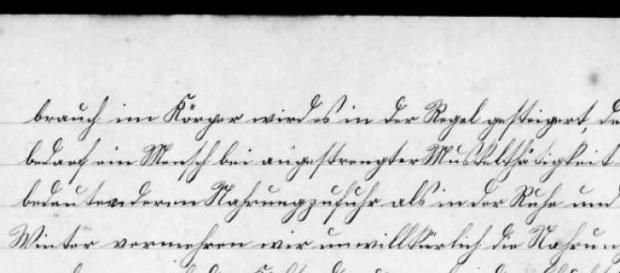 brauch im Körper wird es in der Regel gesteigert, de
bedarf ein Mensch bei angestrengter Muskelthätigkeit
bedeutenderen Nahrungzufuhr als in der Ruhe und
Winter vermehren wir unwillkürlich die Nahrun